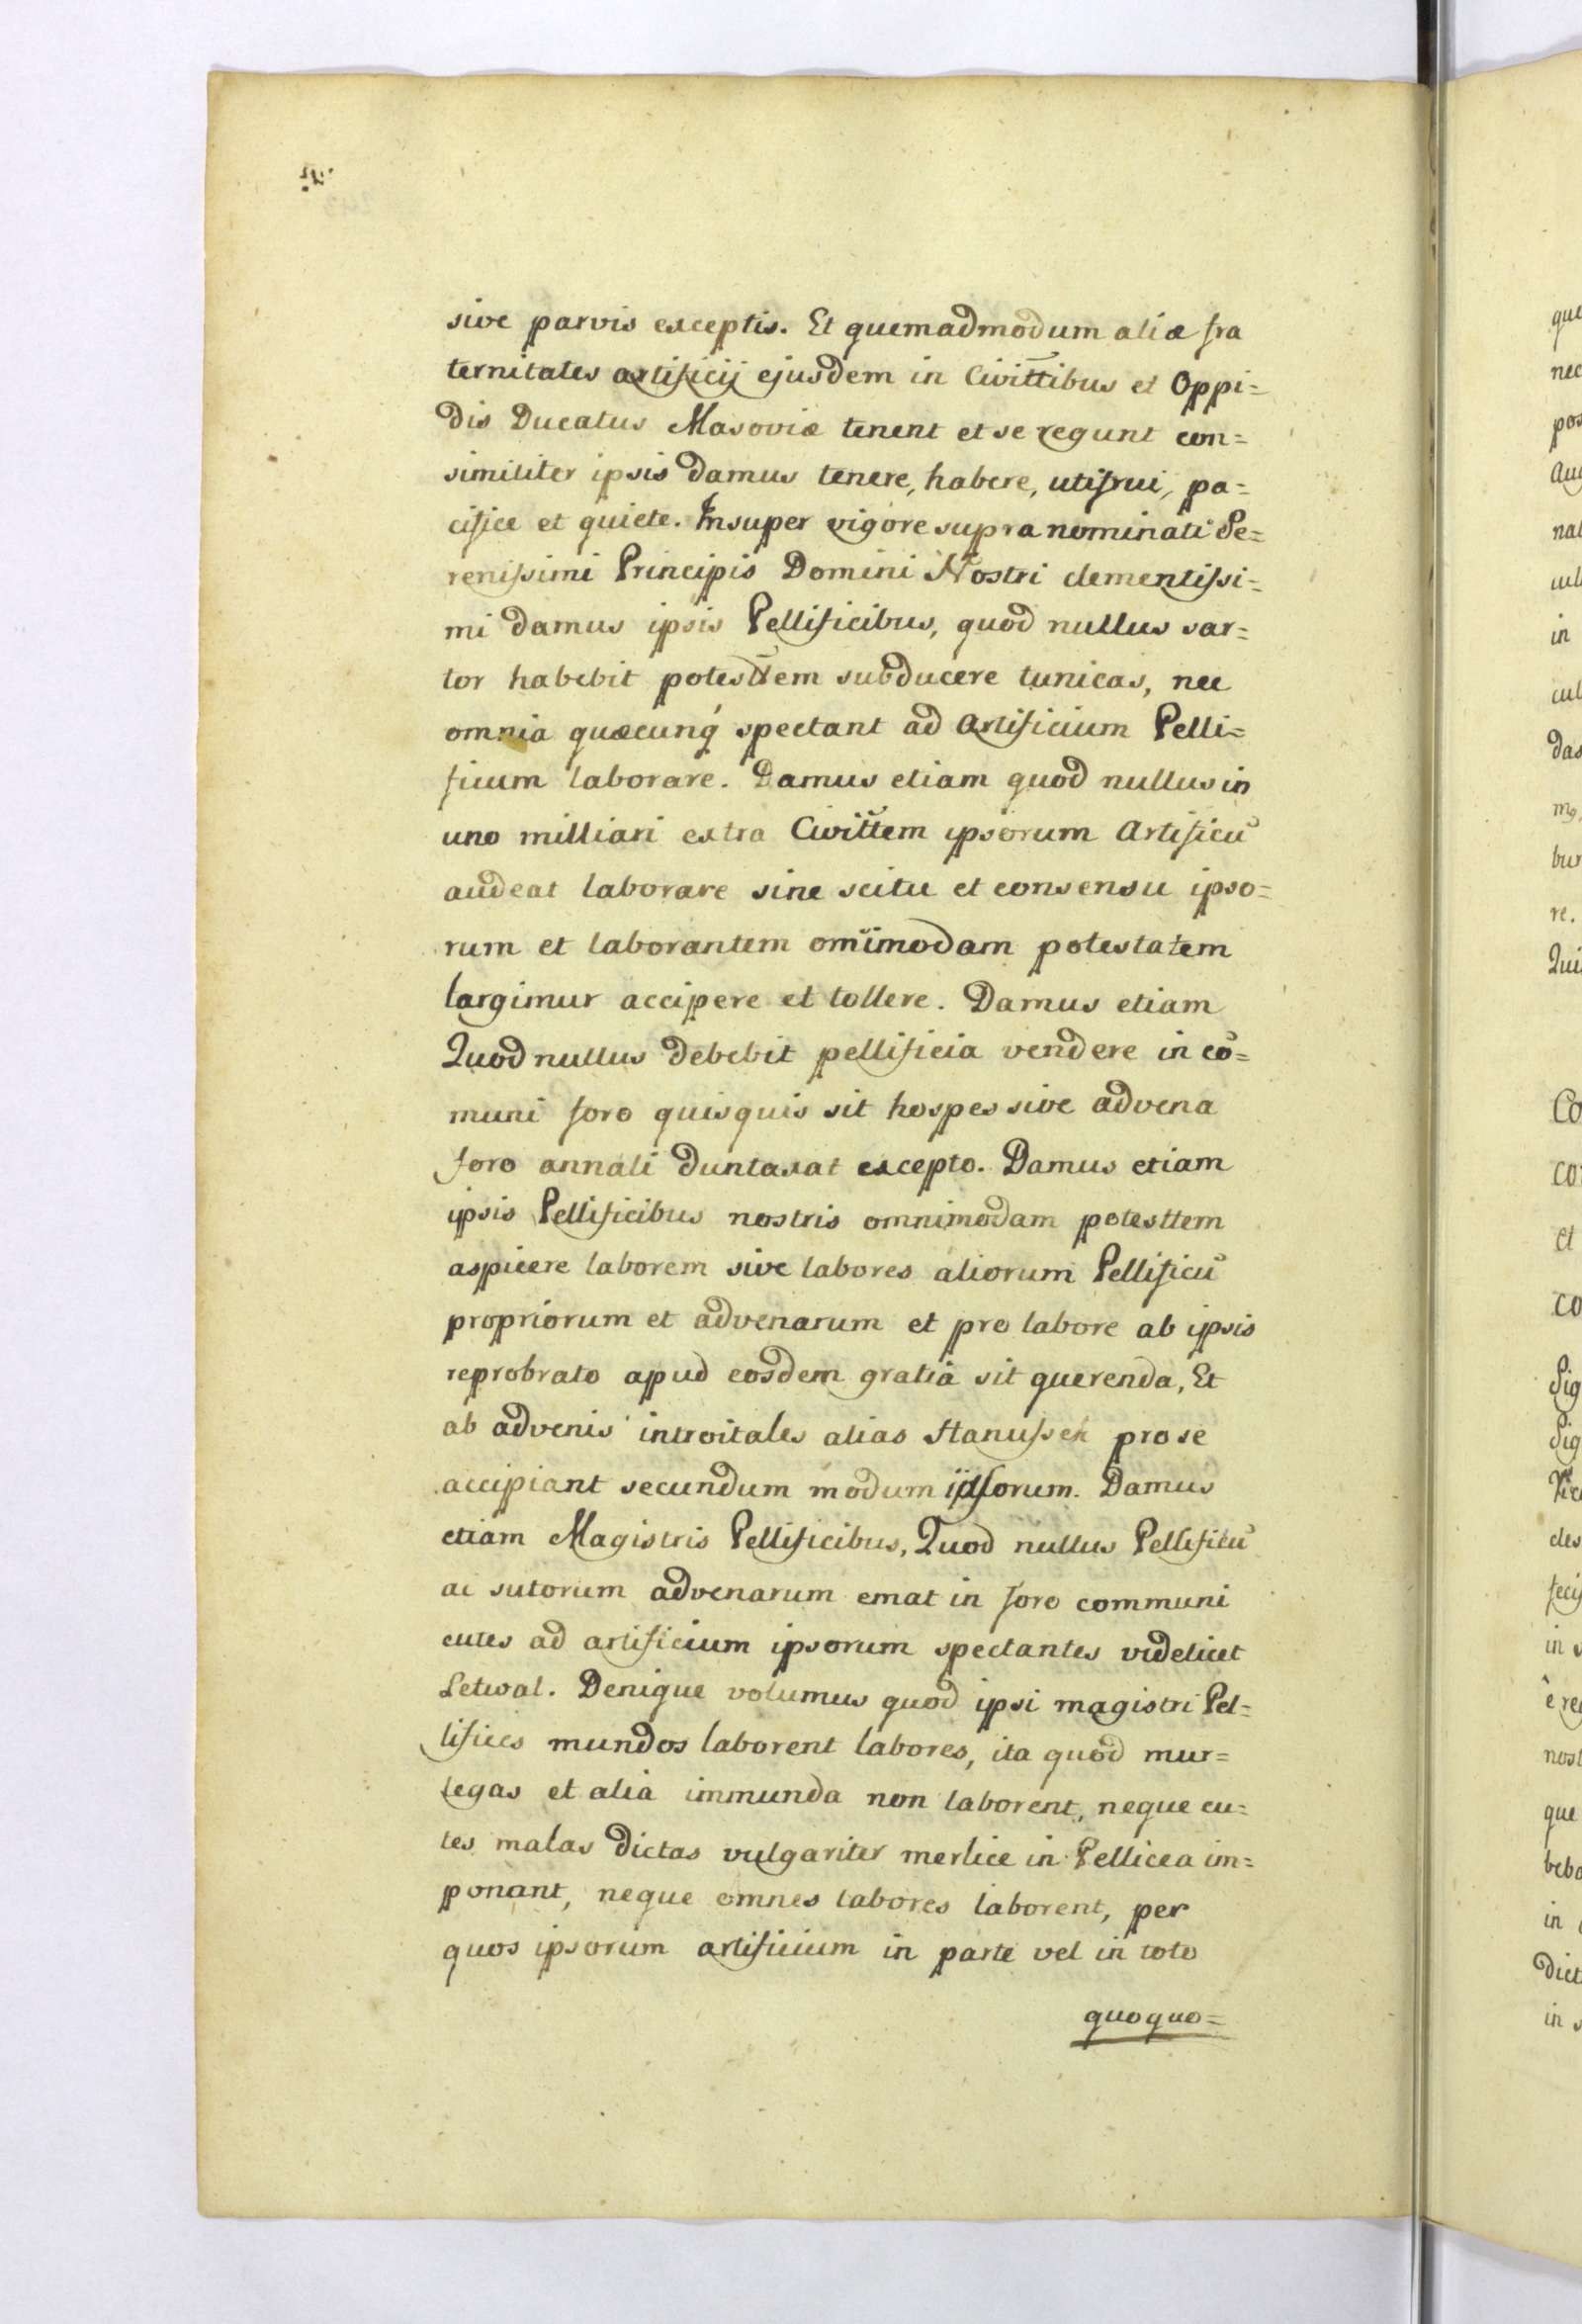 sive parvis exceptis. Et quemadmodum aliæ fra
ternitates artificij ejusdem in Civittibus et Oppi=
dis Ducatus Masoviæ tenent et se regunt con=
similiter ipsis damus tenere, habere, utifrui, pa=
cifice et quiete. Insuper vigore supra nominati Se=
renissimi Principis Domini Nostri clementissi=
mi damus ipsis Pellificibus, quod nullus sar=
tor habebit potesttem subducere tunicas, nec
omnia quæcunq́ spectant ad Artificium Pelli=
ficum laborare. Damus etiam quod nullus in
uno milliari extra Civittem ipsorum Artificū
audeat laborare sine scitu et consensu ipso=
rum et laborantem omïmodam potestatem
largimur accipere et tollere. Damus etiam
Quod nullus debebit pellificia vendere in cō=
muni foro quisquis sit hospes sive advena
foro annali duntaxat excepto. Damus etiam
ipsis Pellificibus nostris omnimodam potesttem
aspicere laborem sive labores aliorum Pellificū
propriorum et advenarum et pro labore ab ipsis
reprobrato apud eosdem gratia sit querenda, Et
ab advenis introitales alias Stanussek pro se
accipiant secundum modum ipsorum. Damus
etiam Magistris Pellificibus, Quod nullus Pellificū
ac sutorum advenarum emat in foro communi
cutes ad artificium ipsorum spectantes videlicet
Letwal. Denique volumus quod ipsi magistri Pel=
lifices mundos laborent labores, ita quod mur=
legas et alia immunda non laborent, neque cu=
tes malas dictas vulgariter merlice in Pellicea im=
ponant, neque omnes labores laborent, per
quos ipsorum artificium in parte vel in toto
quoquo=